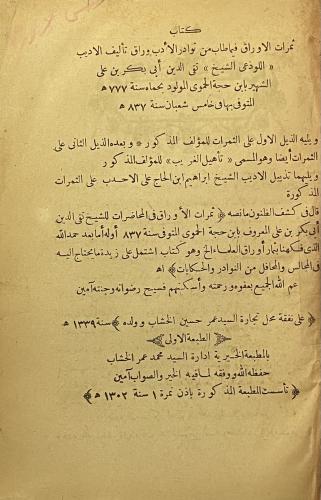 كتاب
ثمرات الاوراق فيما طاب من نوادر الأدب وراق تأليف الاديب
« اللوذعى الشيخ » تقى الدين أبى بكر بن على
الشهير بابن حجة الحموى المولود بحماه سنة ٧٧٧ ﻫ
المتوفى بها فى خامس شعبان سنة ٨٣٧ ﻫ
ويليه الذيل الاول على الثمرات للمؤلف المذكور * وبعده الذيل الثانى على
الثمرات أيضا وهو المسمى « تأهيل الغريب » للمؤلف المذكور
ويليهما تذييل الاديب الشيخ ابراهيم ابن الحاج على الاحدب على الثمرات
المذكورة
قال فى كشف الظنون ما نصه ﴿ ثمرات الأوراق فى المحاضرات للشيخ تقى الدين
أبى بكر بن على المعروف بابن حجة الحموى المتوفى سنة ٨٣٧ أوله أما بعد حمد الله
الذى فكهنا بثمار أوراق العلماء الخ وهو كتاب اشتمل على زبدة ما يحتاج اليه
فى المجالس والمحافل من النوادر والحكايات ﴾ اﻫ
عم الله الجميع بعفوه ورحمته وأسكنهم فسيح رضوانه وجنته آمين
﴿ على نفقة محل تجارة السيد عمر حسين الخشاب وولده ﴾ سنة ١٣٣٩ ﻫ
﴿ الطبعة الاولى ﴾
بالمطبعة الخيرية ادارة السيد محمد عمر الخشاب
حفظه الله ووفقه لما فيه الخير والصواب آمين
﴿ تأسست المطبعة المذكورة باذن نمرة ١ سنة ١٣٠٢ ﻫ ﴾